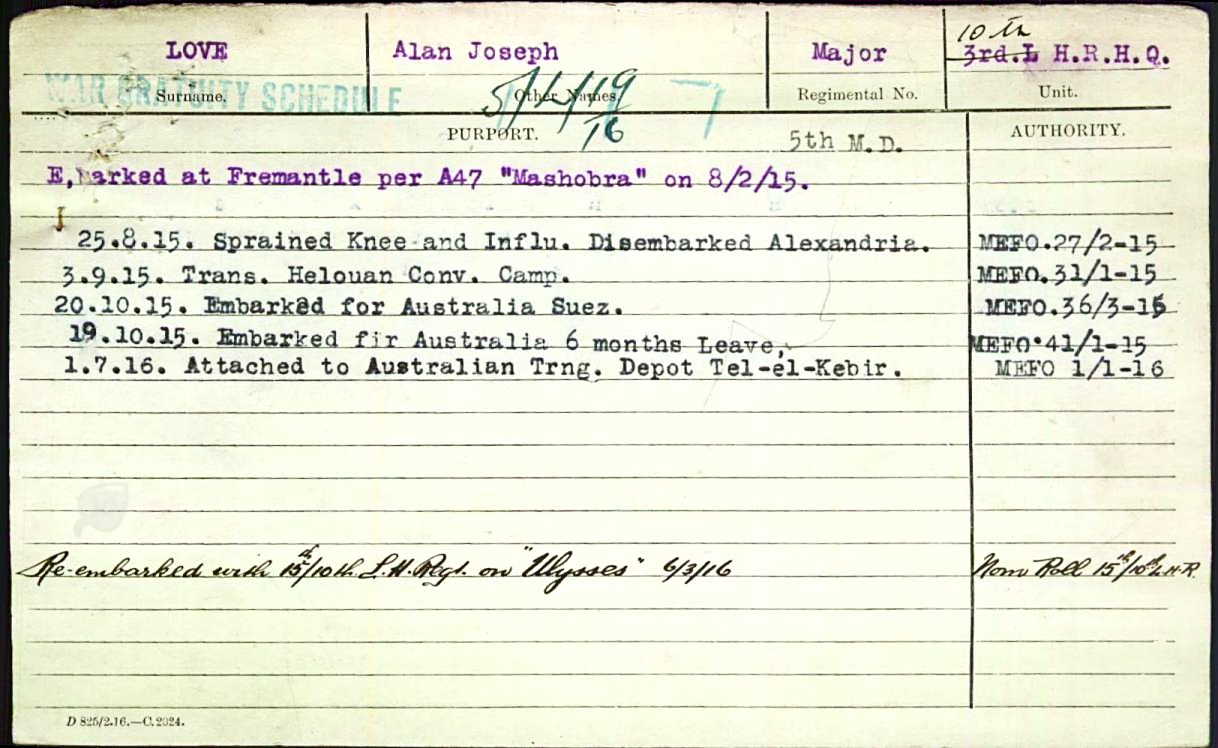 LOVE Alan Joseph Major 10th 3rd.L H.R.H.Q.
WAR GRATUITY SCHEDULE
Surname. Other Names. Regimental No. Unit.
PURPORT. 5th M.D. AUTHORITY.
E,barked at Fremantle per A47 "Mashobra" on 8/2/15.
25.8.15. Sprained Knee and Influ. Disembarked Alexandria. MEFO.27/2-15
3.9.15. Trans. Helouan Conv. Camp. MEFO.31/1-15
20.10.15. Embarked for Australia Suez. MEFO.36/3-15
19.10.15. Embarked fir Australia 6 months Leave, MEFO.41/1-15
1.7.16. Attached to Australian Trng. Depot Tel-el-Kebir. MEFO 1/1-16
Re-embarked with 15th/10th L.H. Regt. on "Ulysses" 6/3/16 Nom Roll 15th/10th L.H.R.
D 825/2.16.—C.2024.